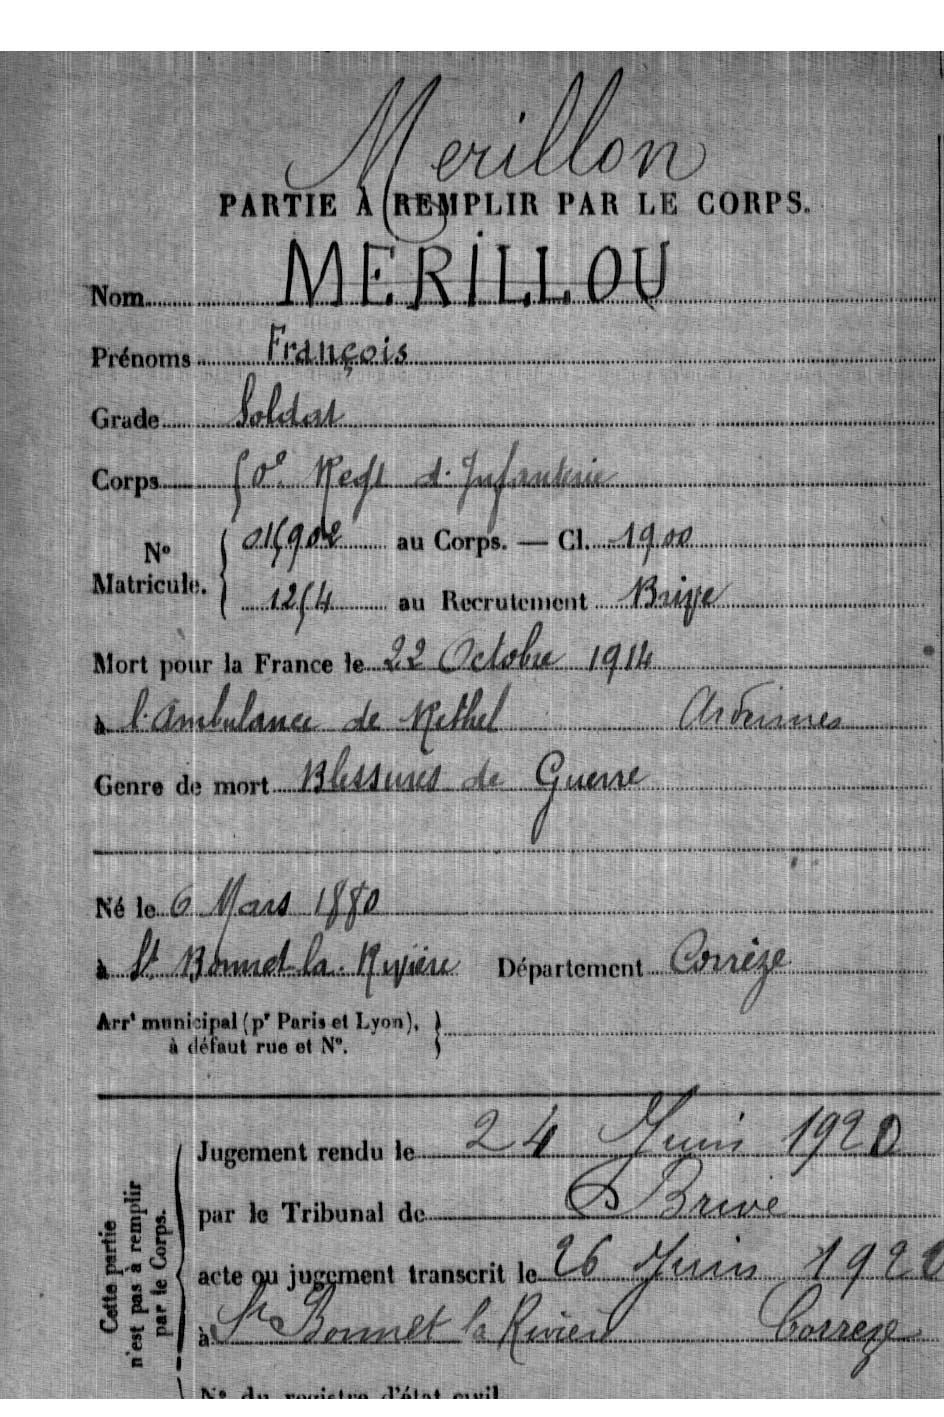 Merillon
PARTIE À REMPLIR PAR LE CORPS.
Nom MERILLOU
Prénoms François
Grade Soldat
Corps 50e Regt d'Infanterie
No Matricule. { 015902 au Corps. — Cl. 1900
1254 au Recrutement Brive
Mort pour la France le 22 Octobre 1914
à l'Ambulance de Rethel Ardennes
Genre de mort Blessures de Guerre
Né le 6 Mars 1880
à St Bonnet-la-Rivière Département Corrèze
Arrt municipal (pr Paris et Lyon), }
à défaut rue et No.
Cette partie
n'est pas à remplir
par le Corps.
Jugement rendu le 24 Juin 1920
par le Tribunal de Brive
acte ou jugement transcrit le 26 Juin 1920
à St Bonnet la Rivière Correze
No du registre d'état civil